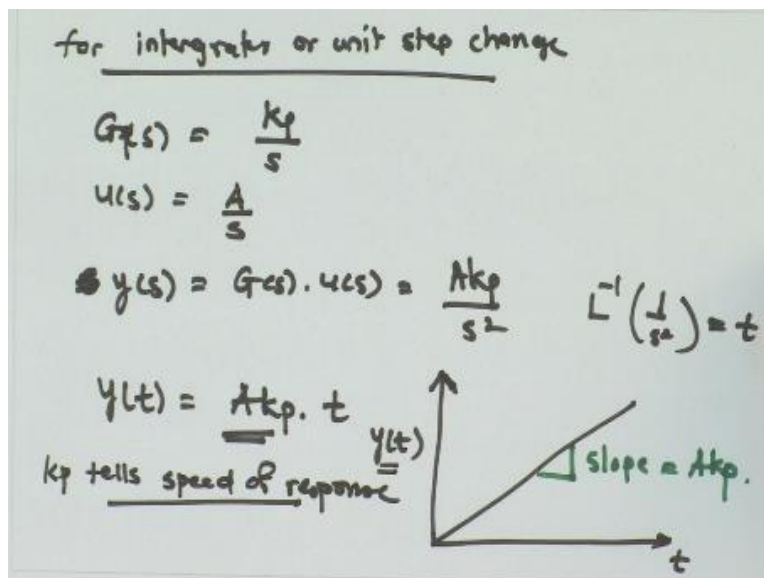 for intergrater or unit step change
G(s) = kp/s
u(s) = A/s
y(s) = G(s).u(s) = Akp/s²
L⁻¹(1/s²) = t
y(t) = Akp. t
y(t)
slope = Akp.
kp tells speed of response
t